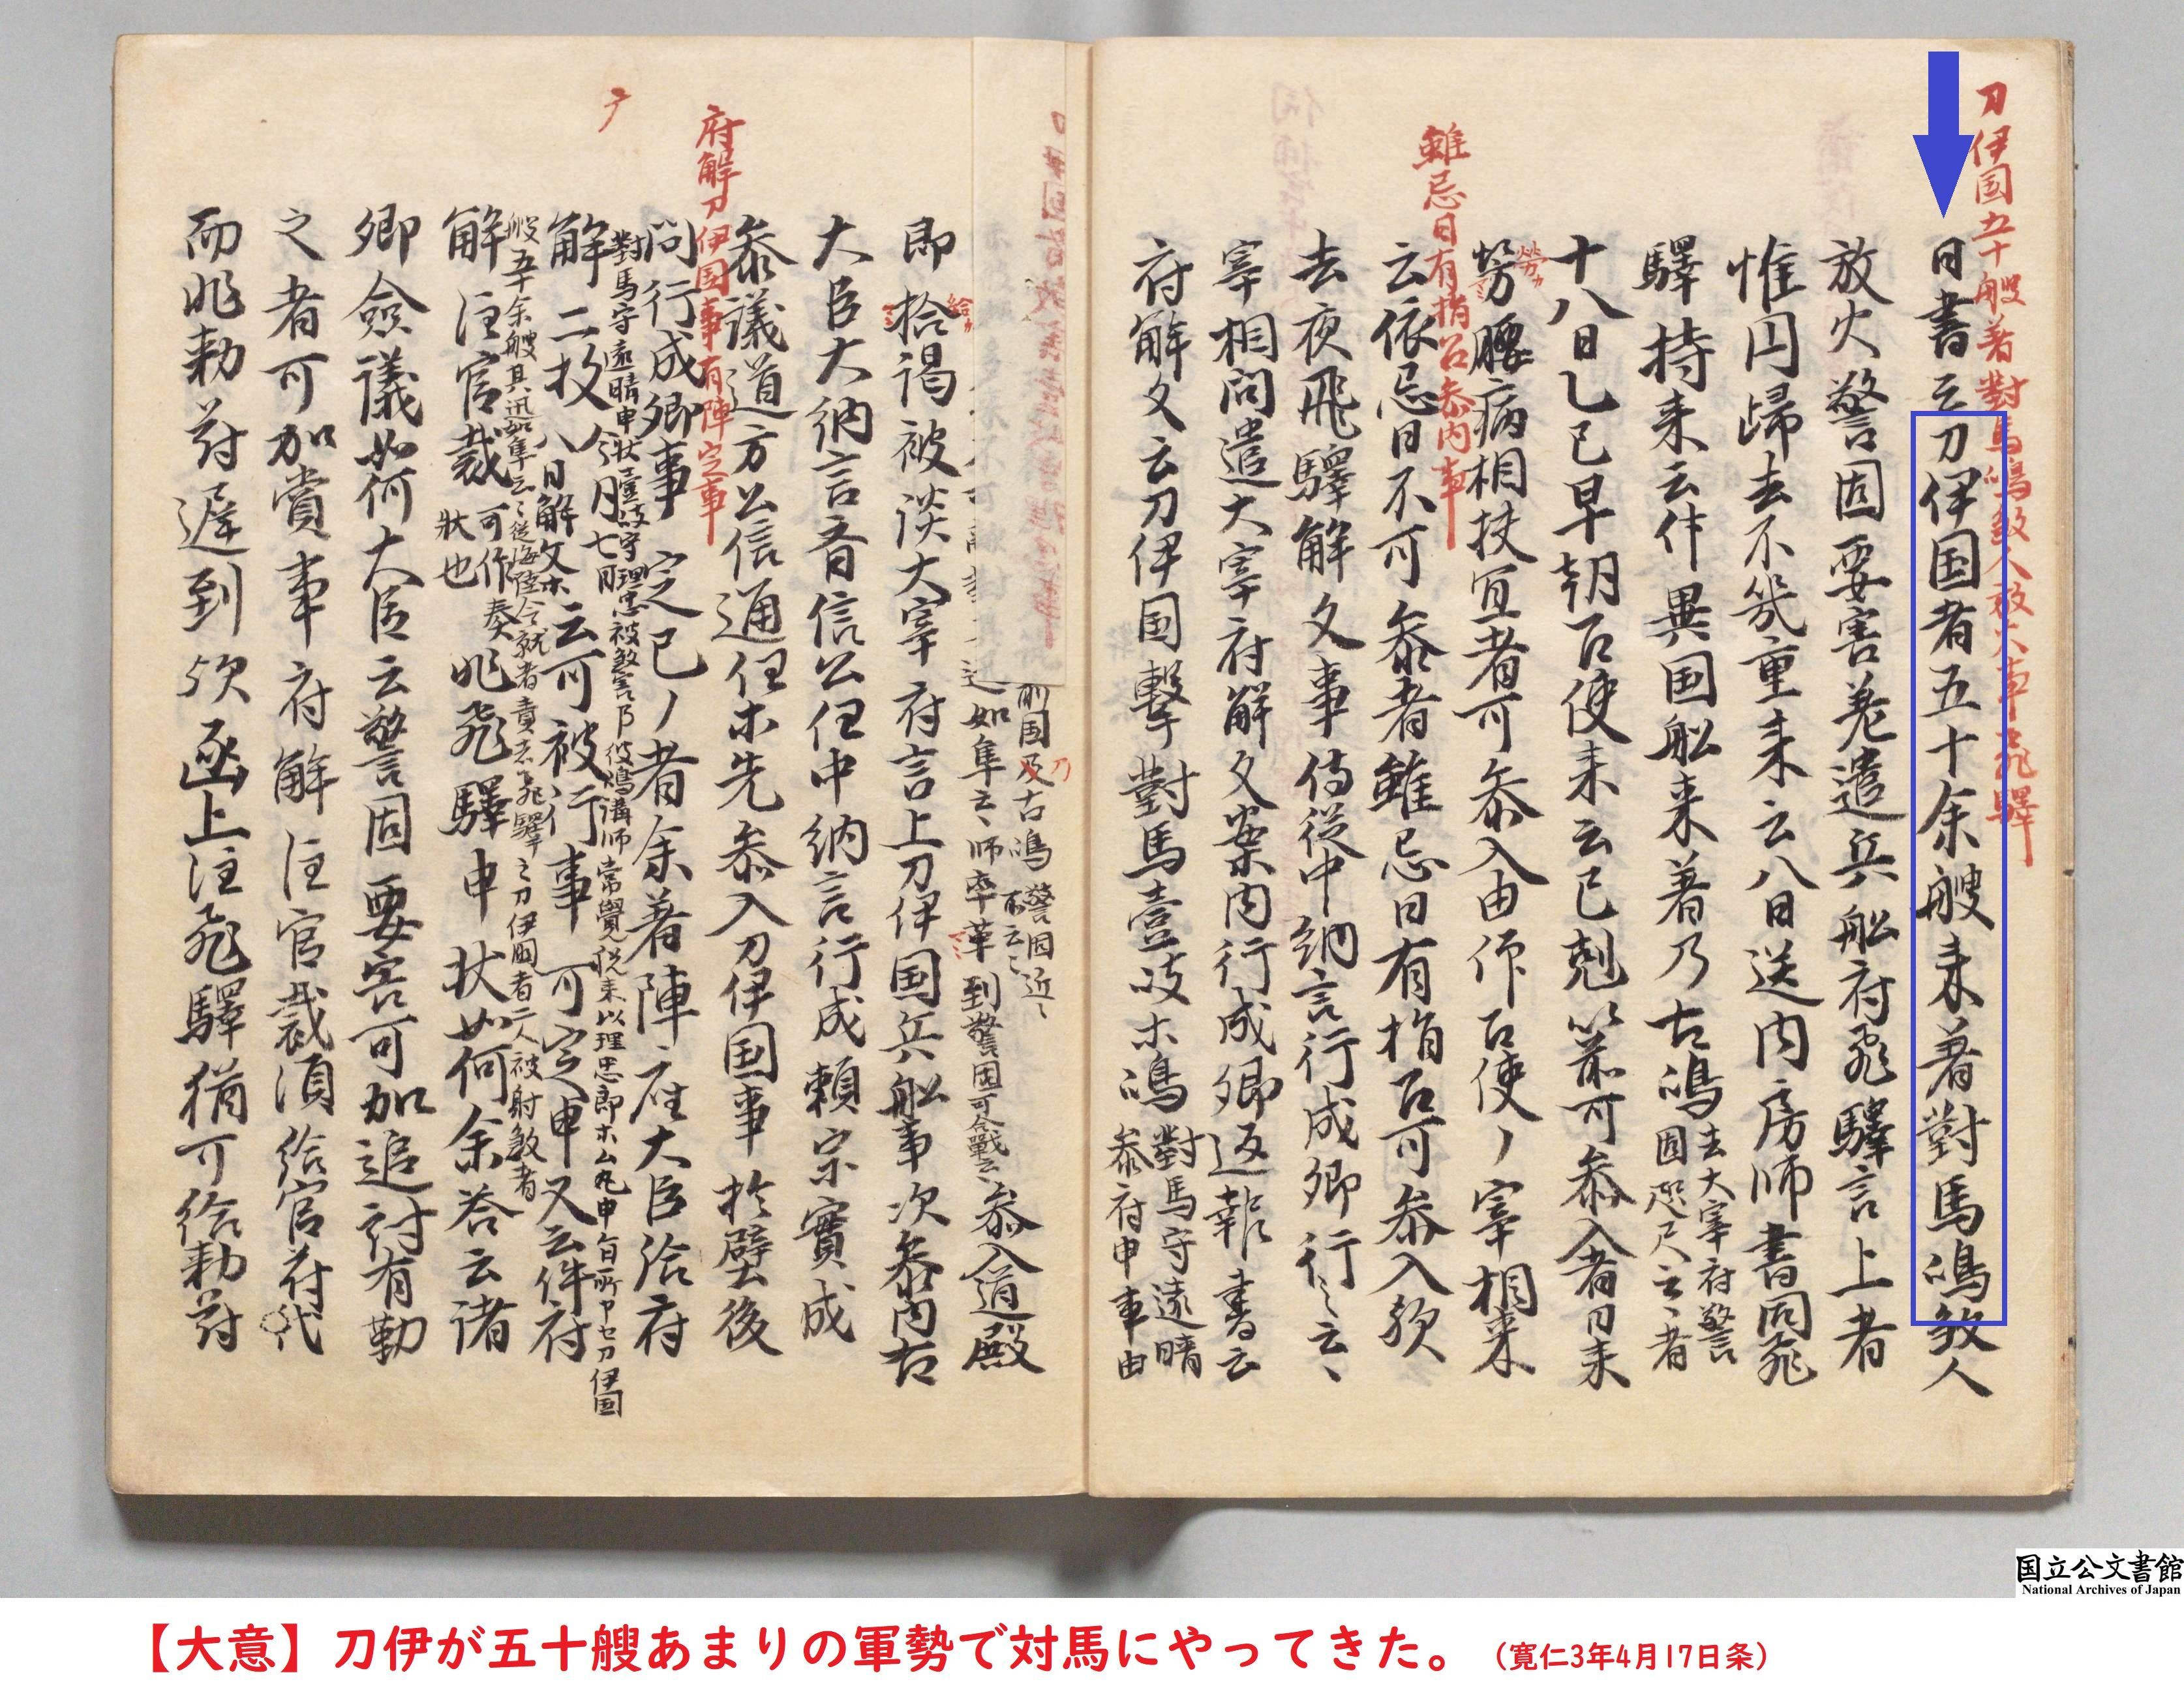 刀伊国五十艘著對馬嶋煞人放火事飛驛
日書云刀伊国者五十余艘来著對馬嶋煞人
放火警固要害差遣兵舩府飛驛言上者
惟円帰去不幾重来云八日送内房師書同飛
驛持来云件異国舩来著乃古嶋去大宰府警
固咫尺云〻者
十八日乙巳早朝召使来云巳剋以前可参入者刀来
勞カ
労腰病相扶宜者可参入由仰召使了宰相来
雖忌日有指召参内事
云依忌日不可参者雖忌日有指召可参入欤
去夜飛驛解文事侍従中納言行成卿行〻云〻
宰相問遣大宰府解文案内行成卿返報書云
府解文云刀伊国撃對馬壹岐木嶋對馬守遠晴
参府申事由
前国及古嶋警固近〻
不云〻
如隼云〻師率軍到警固可合戰云〻参入道殿
給カ
即拾謁被淡大宰府言上刀伊国兵舩事次参内右
大臣大納言斉信公任中納言行成頼宗實成
参議道方公信通任木先参入刀伊国事於壁後
府解刀伊国事有陣定事
問行成卿事定已了者余著陣座大臣給府
對馬守遠晴申状壹岐守理忠被煞害乃彼嶋講師常覺
解二枚今月七日
八日解文木云可被行事可定申又云件府
般五十余艘其迅如隼云〻
解注官裁可作奏
状也
此飛驛申状如何余答云諸
卿僉議如何大臣云警固要害可加追討有勤
之者可加賞事府解注官裁須給官符代
而此勅符遅到欤函上注飛驛猶可給勅符
国立公文書館
National Archives of Japan
【大意】刀伊が五十艘あまりの軍勢で対馬にやってきた。（寛仁3年4月17日条）